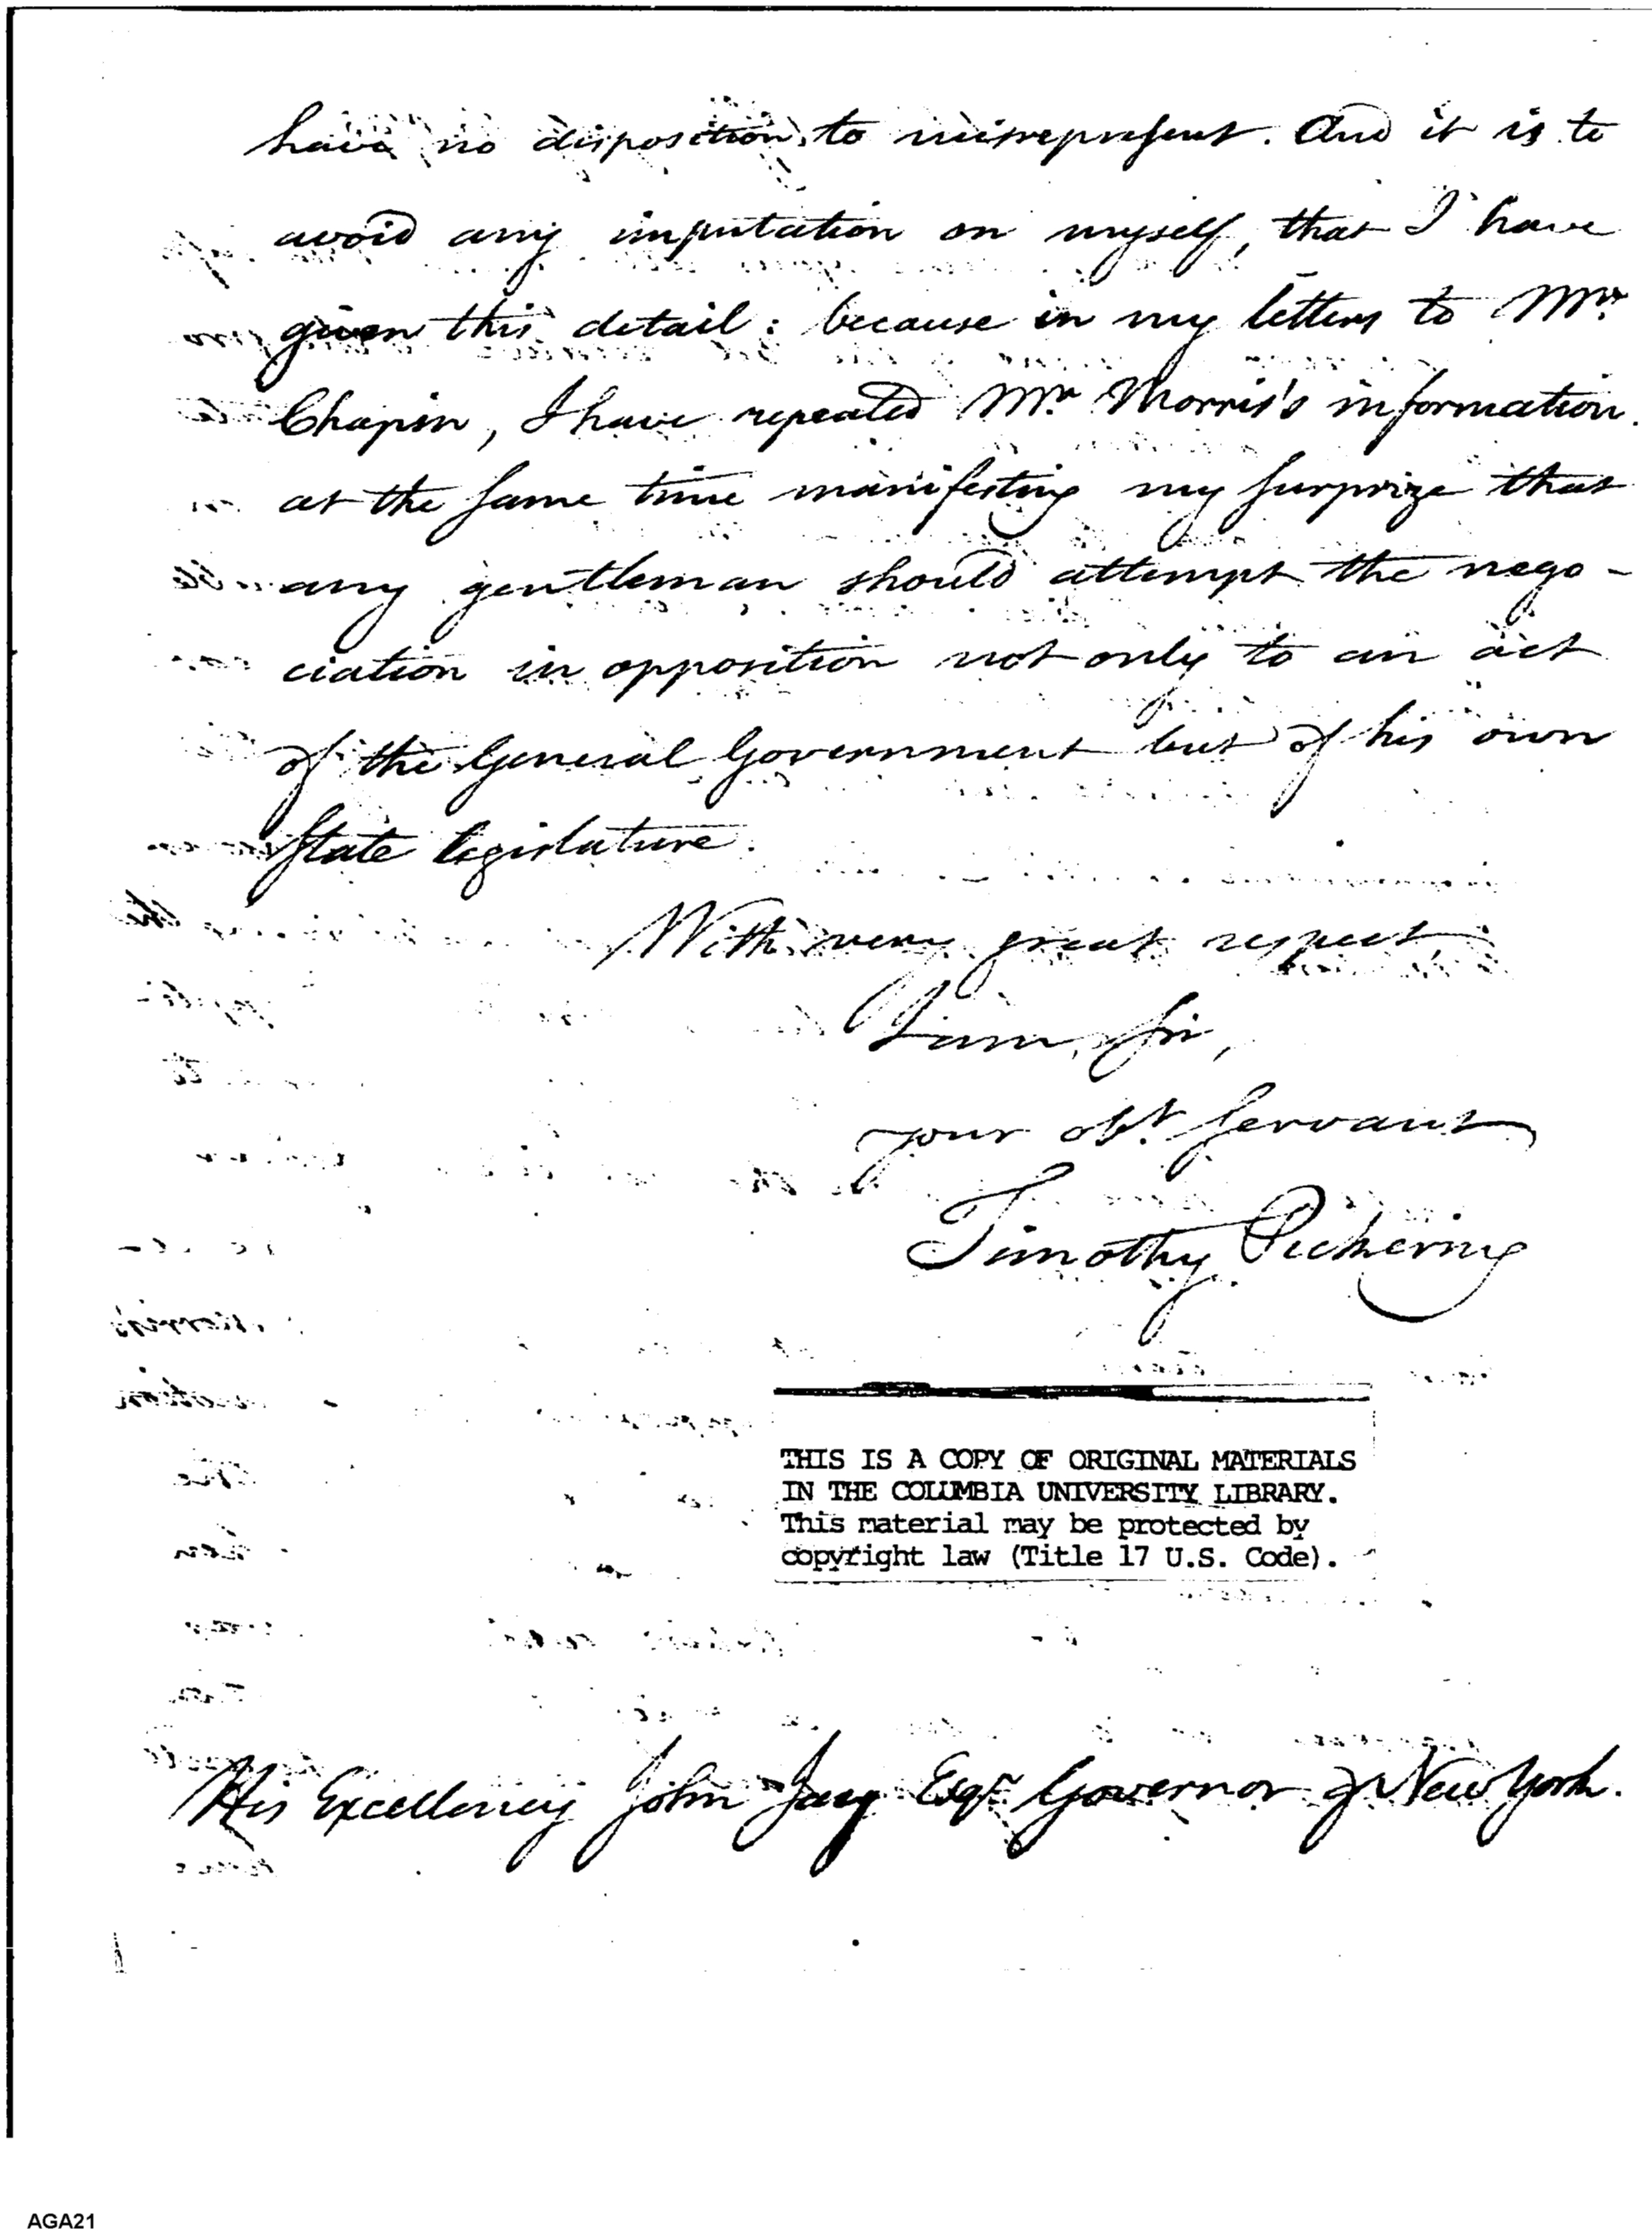 have no disposition to misrepresent. And it is to
avoid any imputation on myself, that I have
given this detail: because in my letters to Mr.
Chapin, I have repeated Mr. Morris's information.
at the same time manifesting my surprize that
any gentleman should attempt the nego-
ciation in opposition not only to an act
of the General Government but of his own
State legislature.
With very great respect
I am, Sir,
your obt. servant
Timothy Pickering
THIS IS A COPY OF ORIGINAL MATERIALS
IN THE COLUMBIA UNIVERSITY LIBRARY.
This material may be protected by
copyright law (Title 17 U.S. Code).
His Excellency John Jay Esqr. Governor of New York.
AGA21